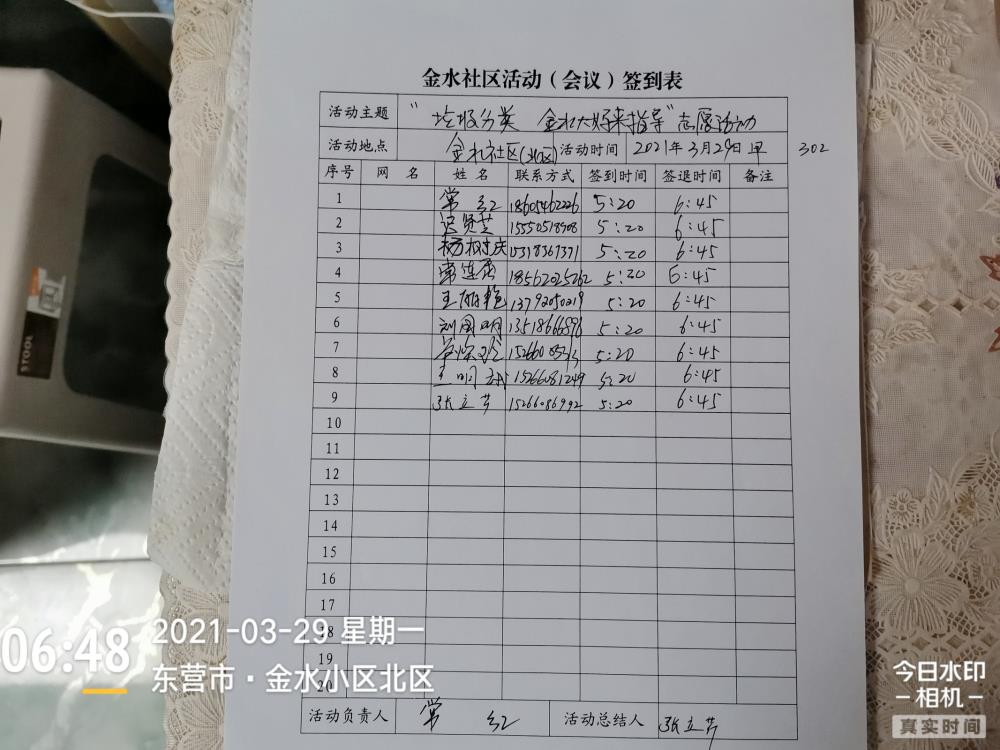 金水社区活动（会议）签到表
活动主题 "垃圾分类 金水大好来指导"志愿活动
活动地点 金水社区(北区) 活动时间 2021年3月29日早 302
序号 网 名 姓 名 联系方式 签到时间 签退时间 备注
1 常 红 18605462226 5:20 6:45
2 迟贤芝 15550518908 5:20 6:45
3 杨树庆 5:20 6:45
4 常连勇 18562025262 5:20 6:45
5 王丽艳 13792050219 5:20 6:45
6 刘国明 13518666896 5:20 6:45
7 5:20 6:45
8 王明 15266081249 5:20 6:45
9 张立芹 15266086992 5:20 6:45
10
11
12
13
14
15
16
17
18
19
20
活动负责人 常 红 活动总结人 张立芹
STOOL
06:48
2021-03-29 星期一
东营市·金水小区北区
今日水印
相机
真实时间